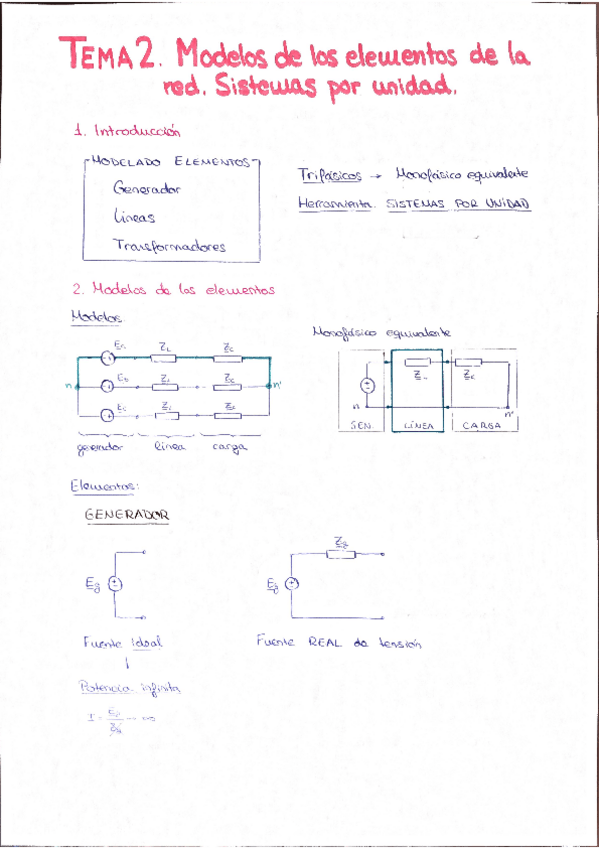 TEMA 2. Modelos de los elementos de la
red. Sistemas por unidad.
1. Introducción
MODELADO ELEMENTOS
Generador
Líneas
Transformadores
Trifásicos → Monofásico equivalente
Herramienta. SISTEMAS POR UNIDAD
2. Modelos de los elementos
Modelos
Monofásico equivalente
ZL ZC
n n'
Eb ZC
Ec
generador línea carga
n n'
GEN LÍNEA CARGA
Elementos:
GENERADOR
Zg
Eg Eg
Fuente ideal
Fuente REAL de tensión
↓
Potencia infinita